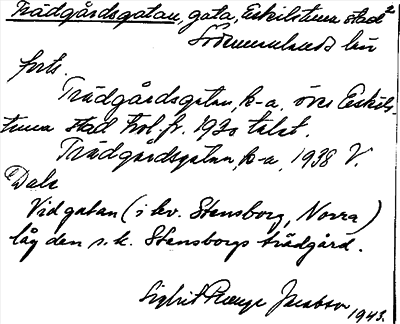 Trädgårdsgatan, gata, Eskilstuna stad 2
Södermanlands län
forts.
Trädgårdsgatan, k-a, övre Eskils-
tuna stad trol. fr. 1930 talet.
Trädgårdsgatan, k-a, 1938 V.
Dale
Vid gatan (i kv. Stensborg, Norra)
låg den s.k. Stensborgs trädgård.
Sigfrid Jacobson
1943.